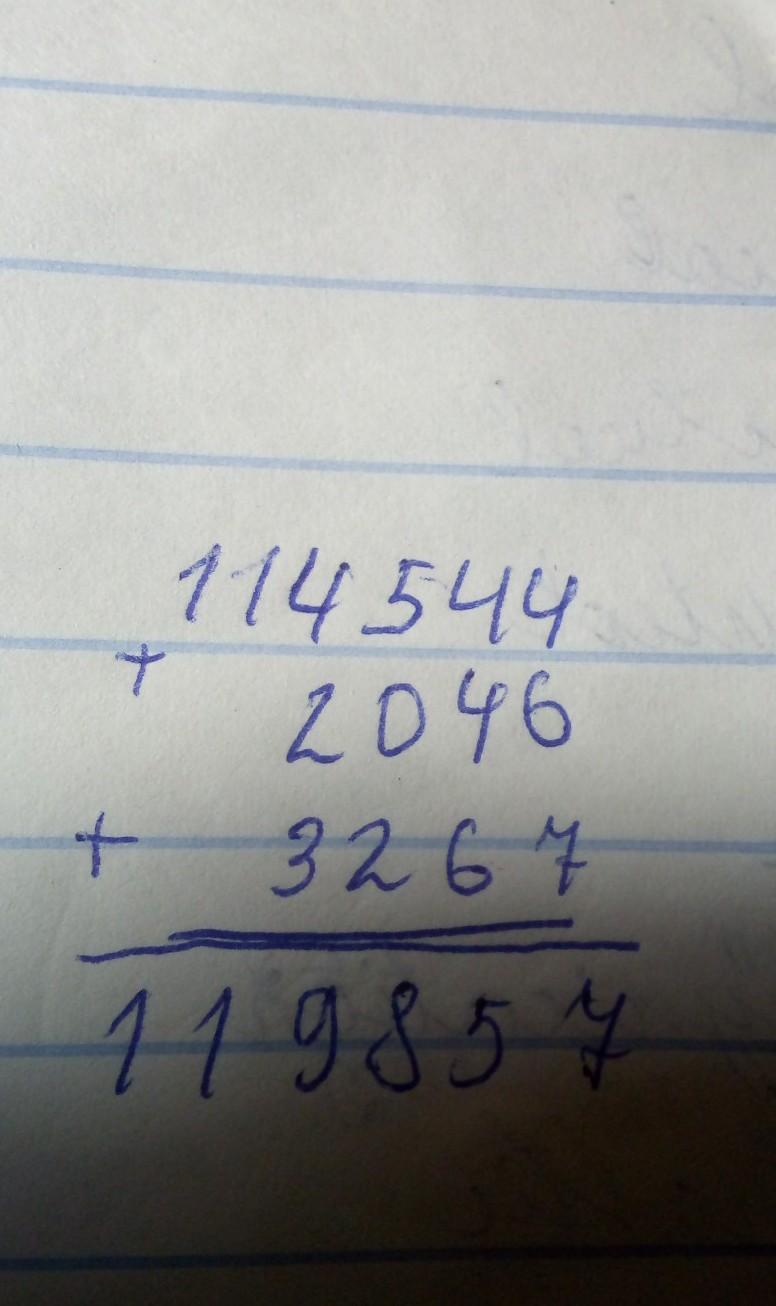 114544
+ 2046
+ 3267
119857